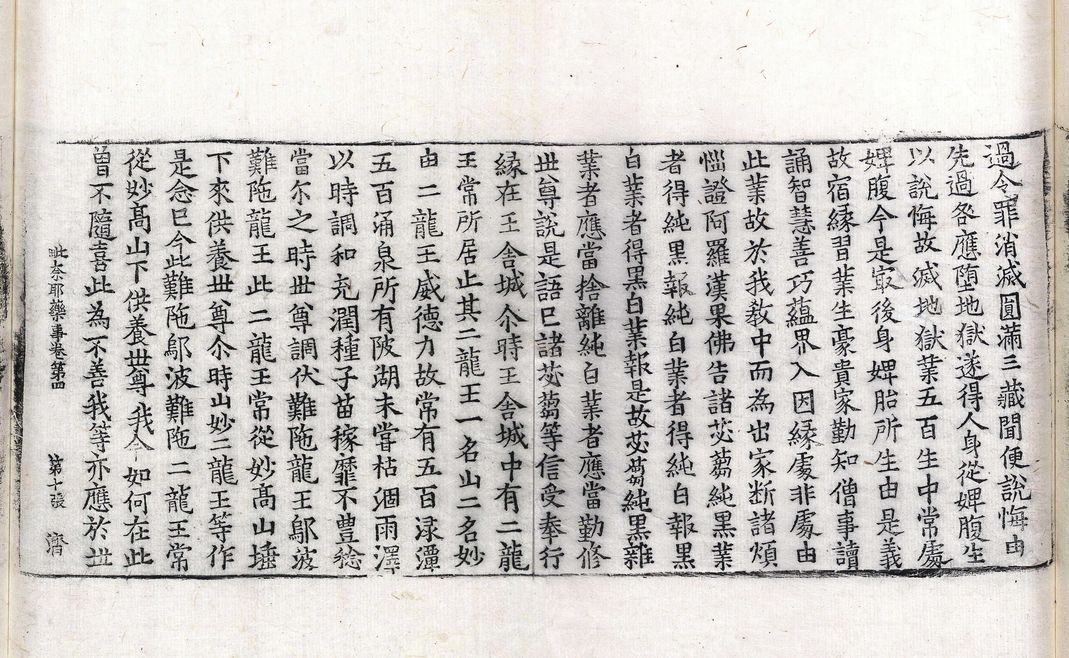 過令罪消滅圓滿三藏聞便說悔由
先過咎應墮地獄遂得人身從婢腹生
以說悔故滅地獄業五百生中常處
婢腹今是㝡後身婢胎所生由是義
故宿緣習業生豪貴家勤知僧事讀
誦智慧善巧蘊界入因緣處非處由
此業故於我教中而為出家断諸煩
惱證阿羅漢果佛告諸苾蒭純黑業
者得純黑報純白業者得純白報黑
白業者得黑白業報是故苾蒭純黑雜
業者應當捨離純白業者應當勤修
丗尊說是語已諸苾蒭等信受奉行
緣在王舎城尒時王舎城中有二龍
王常所居止其二龍王一名山二名妙
由二龍王威德力故常有五百渌潭
五百涌泉所有陂湖未甞枯涸雨澤
以時調和充潤種子苗稼靡不豊稔
當尒之時丗尊調伏難陁龍王鄔波
難陁龍王此二龍王常從妙髙山埵
下來供養丗尊尒時山妙二龍王等作
是念已今此難陁鄔波難陁二龍王常
從妙髙山下供養世尊我今如何在此
曽不隨喜此為不善我等亦應於丗
毗奈耶藥事卷第四 第十張 濟